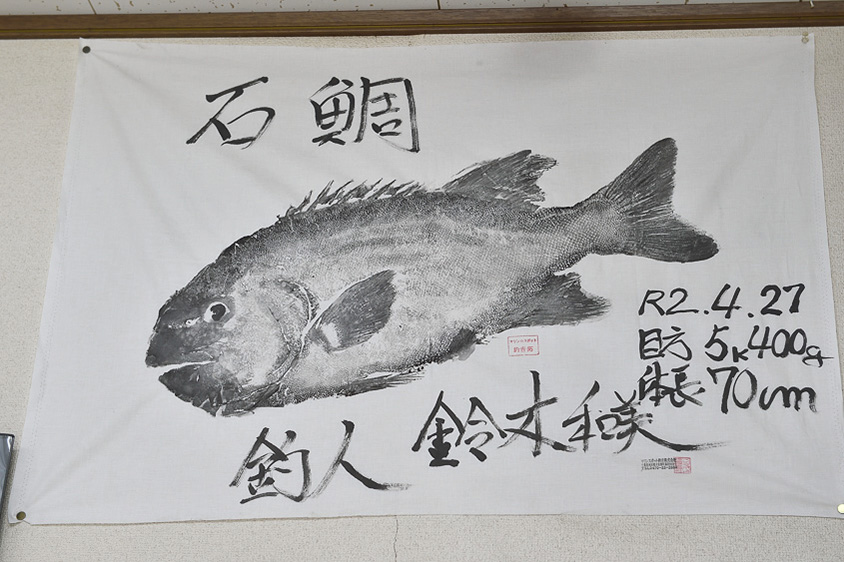 石鯛
R2.4.27
目方 5K400g
体長 70cm
釣人 鈴木和美